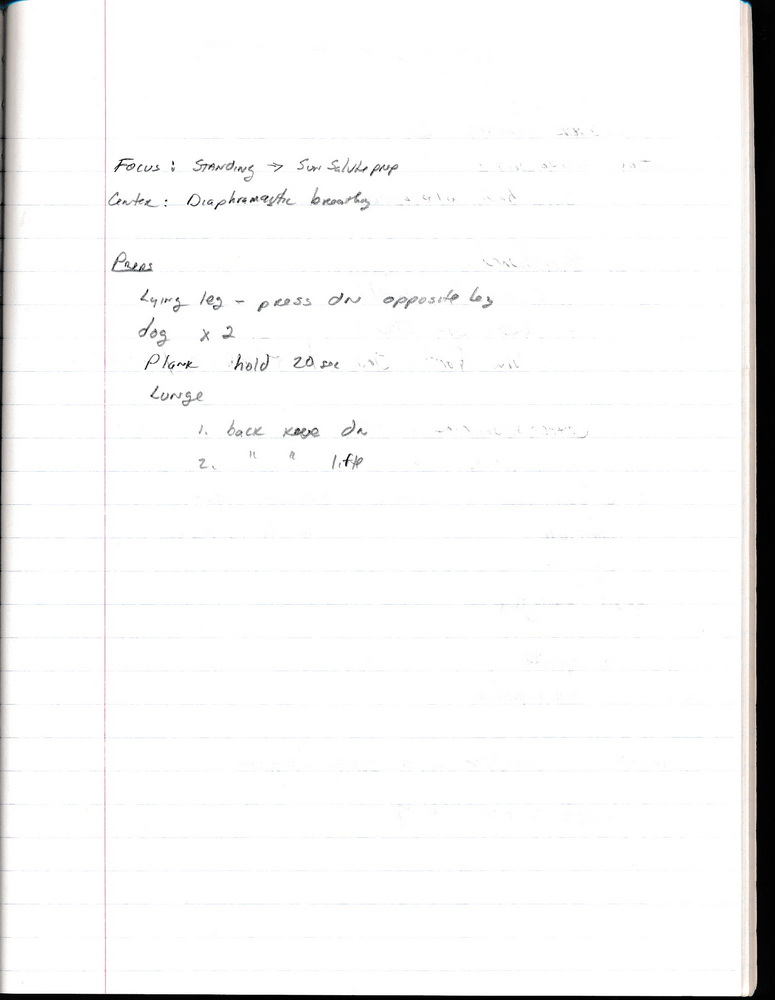 Focus: STANDING → Sun Salute prep
Center: Diaphramagtic breathg
Preps
Lying leg - press dn opposite leg
dog x 2
Plank hold 20 sec
Lunge
1. back knee dn
2. " " lift